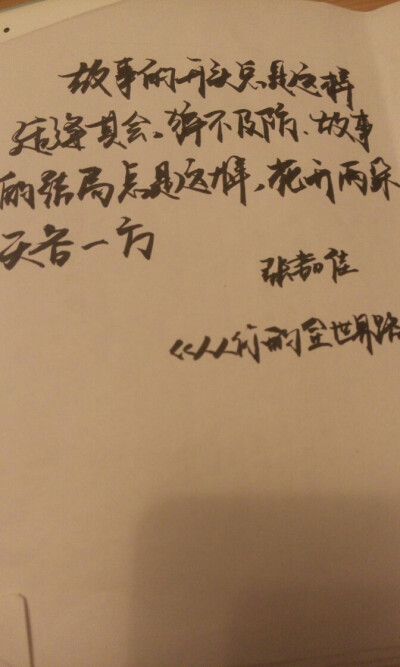 故事的开头总是这样
适逢其会。猝不及防、故事
的结局总是这样,花开两朵
天各一方
张嘉佳
《从你的全世界路